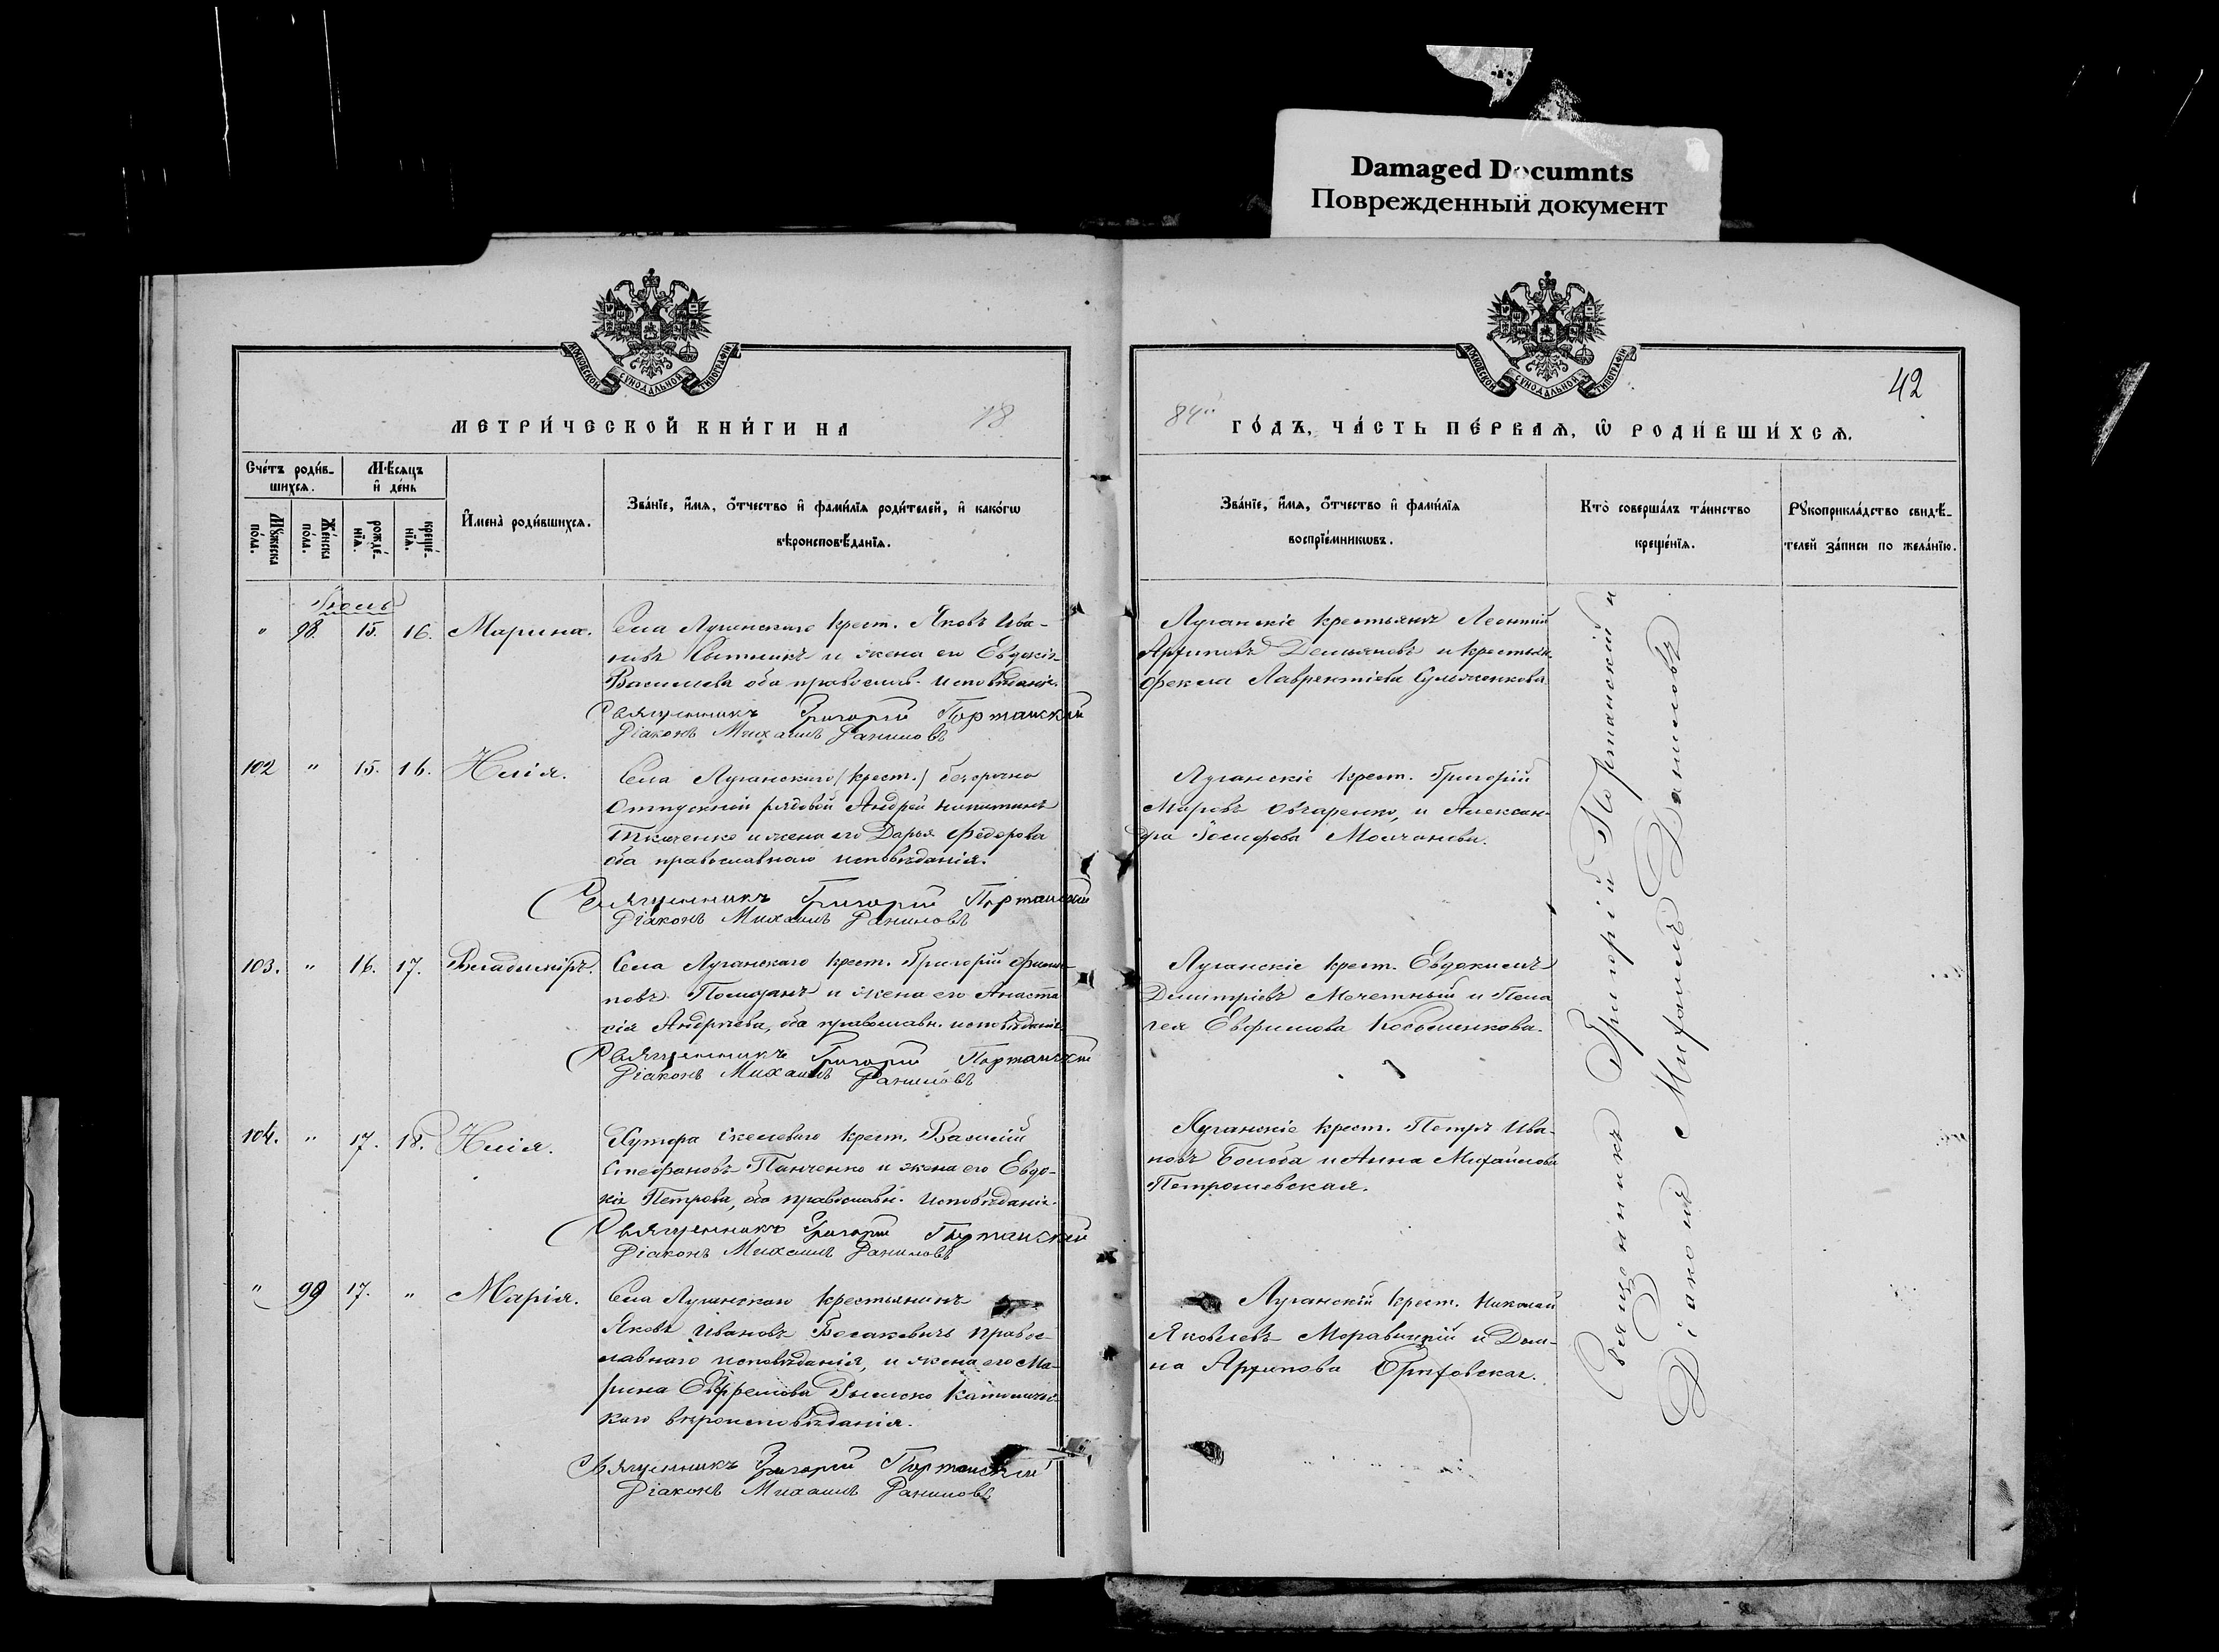 Damaged Documnts
Поврежденный документ
МОСКОВСКОЙ СѴНОДАЛЬНОЙ ТИПОГРАФІИ
МОСКОВСКОЙ СѴНОДАЛЬНОЙ ТИПОГРАФІИ
42
МЕТРИ́ЧЕСКОЙ КНИ́ГИ НА 18
84й ГО́ДЪ, ЧА́СТЬ ПЕ́РВАѦ, Ѡ РОДИ́ВШИ́ХСѦ.
Сче́тъ роди́в-
шихсѧ.
Мѣ́сѧцъ
и де́нь
Мꙋ́жеска по́ла.
Же́нска по́ла.
рожде́-
нїѧ.
креще́-
нїѧ.
И҆мена̀ роди́вшихсѧ.
Зва́нїе, и҆́мѧ, ѻ҆́тчество и҆ фами́лїѧ роди́телей, и҆ како́гѡ
вѣроисповѣ́данїѧ.
Зва́нїе, и҆́мѧ, ѻ҆́тчество и҆ фами́лїѧ
воспрїе́мникѡвъ.
Кто̀ соверша́лъ та́инство
креще́нїѧ.
Рꙋкоприкла́дство свидѣ́-
телей за́писи по жела́нїю.
Іюль
" 98. 15. 16. Марина.
Села Луганскаго крест. Яковъ Ива-
новъ Сытникъ и жена его Евдокія
Васильева оба православ. исповѣданія.
Священникъ Григорій Портанскій
Діаконъ Михаилъ Даниловъ
Луганскіе крестьянъ Леонтій
Архиповъ Демьяновъ и крестьян.
Ѳекла Лаврентіева
102 " 15. 16. Илія.
Села Луганскаго (крест.) безсрочно
отпускной рядовой Андрей Никитинъ
Ткаченко и жена его Дарья Ѳедорова
оба православнаго исповѣданія.
Священникъ Григорій Портанскій
Діаконъ Михаилъ Даниловъ
Луганскіе крест. Григорій
Марковъ Овчаренко, и Алексан-
дра Іосифова Молчанова.
103. " 16. 17. Владиміръ.
Села Луганскаго крест. Григорій Филип-
повъ и жена его Анаста
сія Андреева, оба православн. исповѣданія
Священникъ Григорій Портанскій
Діаконъ Михаилъ Даниловъ
Луганскіе крест. Евдокимъ
Димитріевъ Мечетный и Пела
гея Евфимова
104. " 17. 18. Илія.
Хутора крест. Василій
Стефановъ Панченко и жена его Евдо-
кія Петрова, оба православн. исповѣданія.
Священникъ Григорій Портанскій
Діаконъ Михаилъ Даниловъ
Луганскіе крест. Петръ Ива-
новъ и Анна Михайлова
Петрашевская.
" 99 17. " Марія.
Села Луганскаго крестьянинъ
Яковъ Ивановъ правос-
лавнаго исповѣданія, и жена его Ма-
рина Ефремова Римско Католичес-
каго вѣроисповѣданія.
Священникъ Григорій Портанскій
Діаконъ Михаилъ Даниловъ
Луганскій крест. Николай
Яковлевъ Моравицкій и Дом-
на Архипова
Священникъ Григорій Портанскій и
Діаконъ Михаилъ Даниловъ